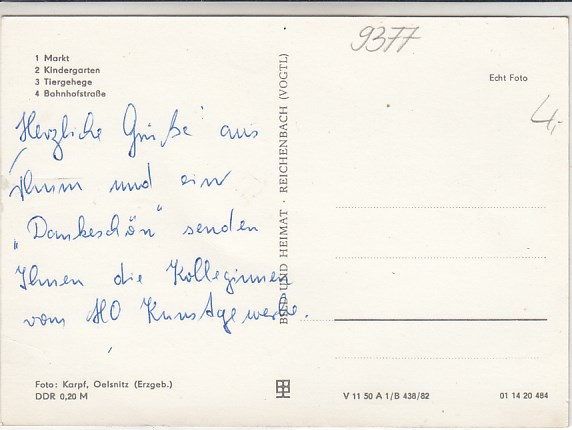 9377
1 Markt
2 Kindergarten
3 Tiergehege
4 Bahnhofstraße
Echt Foto
4,-
Herzliche Grüße aus
Thum und ein
„Dankeschön" senden
Ihnen die Kolleginnen
vom HO Kunstgewerbe.
BILD UND HEIMAT · REICHENBACH (VOGTL)
Foto: Karpf, Oelsnitz (Erzgeb.)
DDR 0,20 M
V 11 50 A 1/B 438/82
01 14 20 484